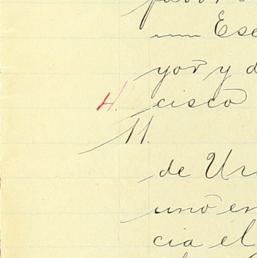 un Ese
yor y d
4. cisco
11.
de Ur
uno en
cia el